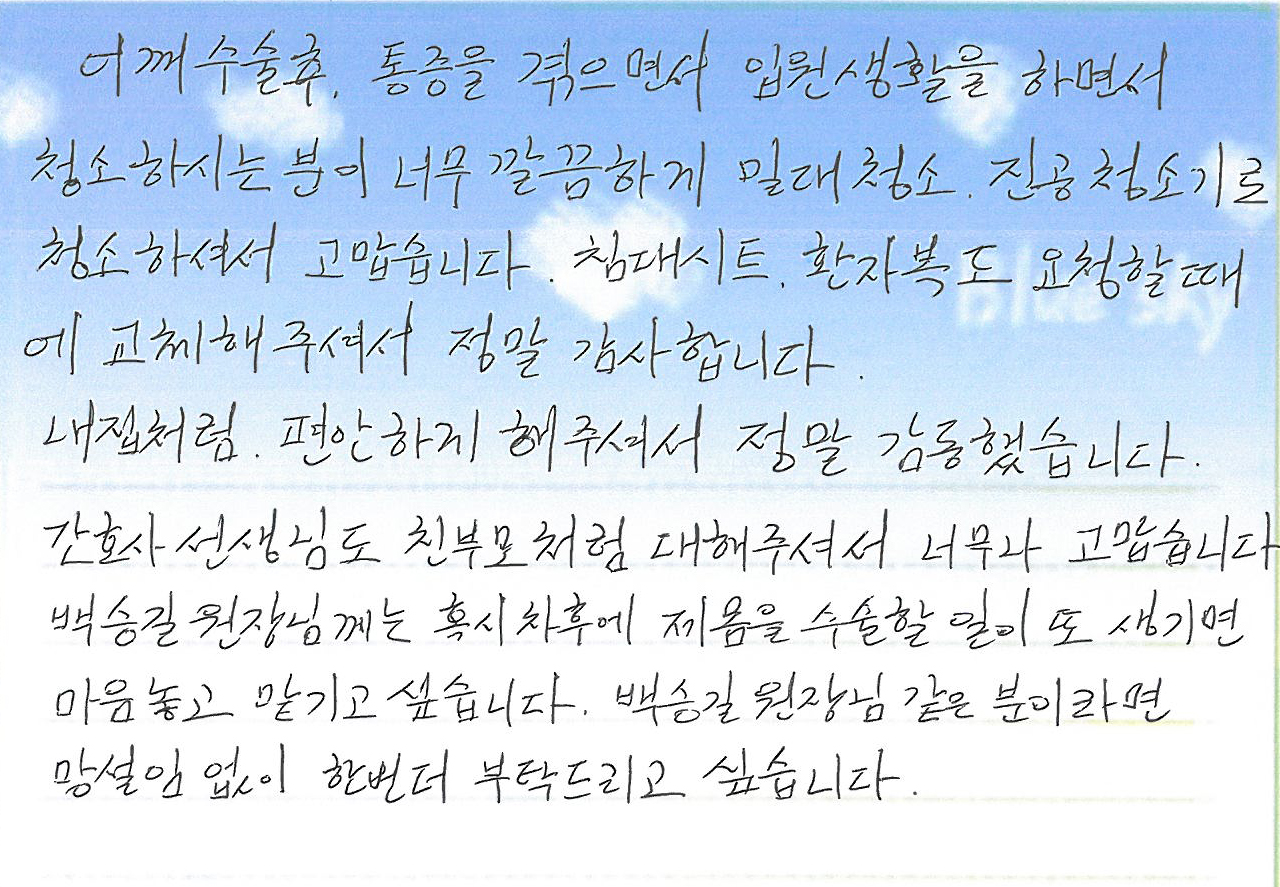 어깨수술후, 통증을 겪으면서 입원생활을 하면서
청소하시는 분이 너무 깔끔하게 밀대청소, 진공청소기로
청소하셔서 고맙습니다. 침대시트, 환자복도 요청할때
blue sky
에 교체해주셔서 정말 감사합니다.
내집처럼, 편안하게 해주셔서 정말 감동했습니다.
간호사선생님도 친부모처럼 대해주셔서 너무나 고맙습니다
백승길 원장님께는 혹시차후에 제몸을 수술할 일이 또 생기면
마음놓고 맡기고 싶습니다. 백승길 원장님 같은 분이라면
망설임 없이 한번더 부탁드리고 싶습니다.